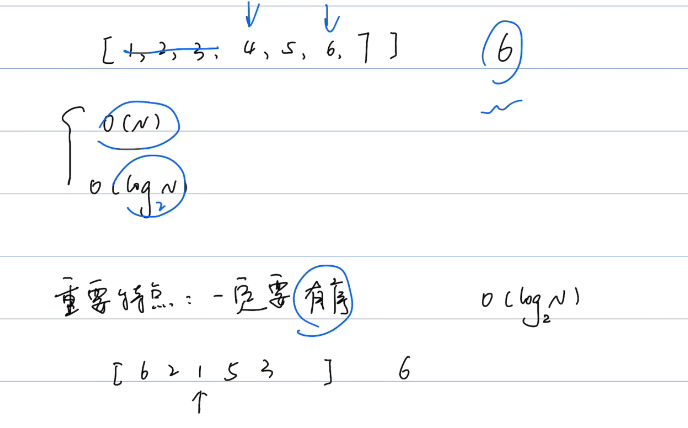 [ 1, 2, 3, 4, 5, 6, 7 ] 6
O(N)
O(log₂N)
重要特点：一定要有序 O(log₂N)
[ 6 2 1 5 3 ] 6